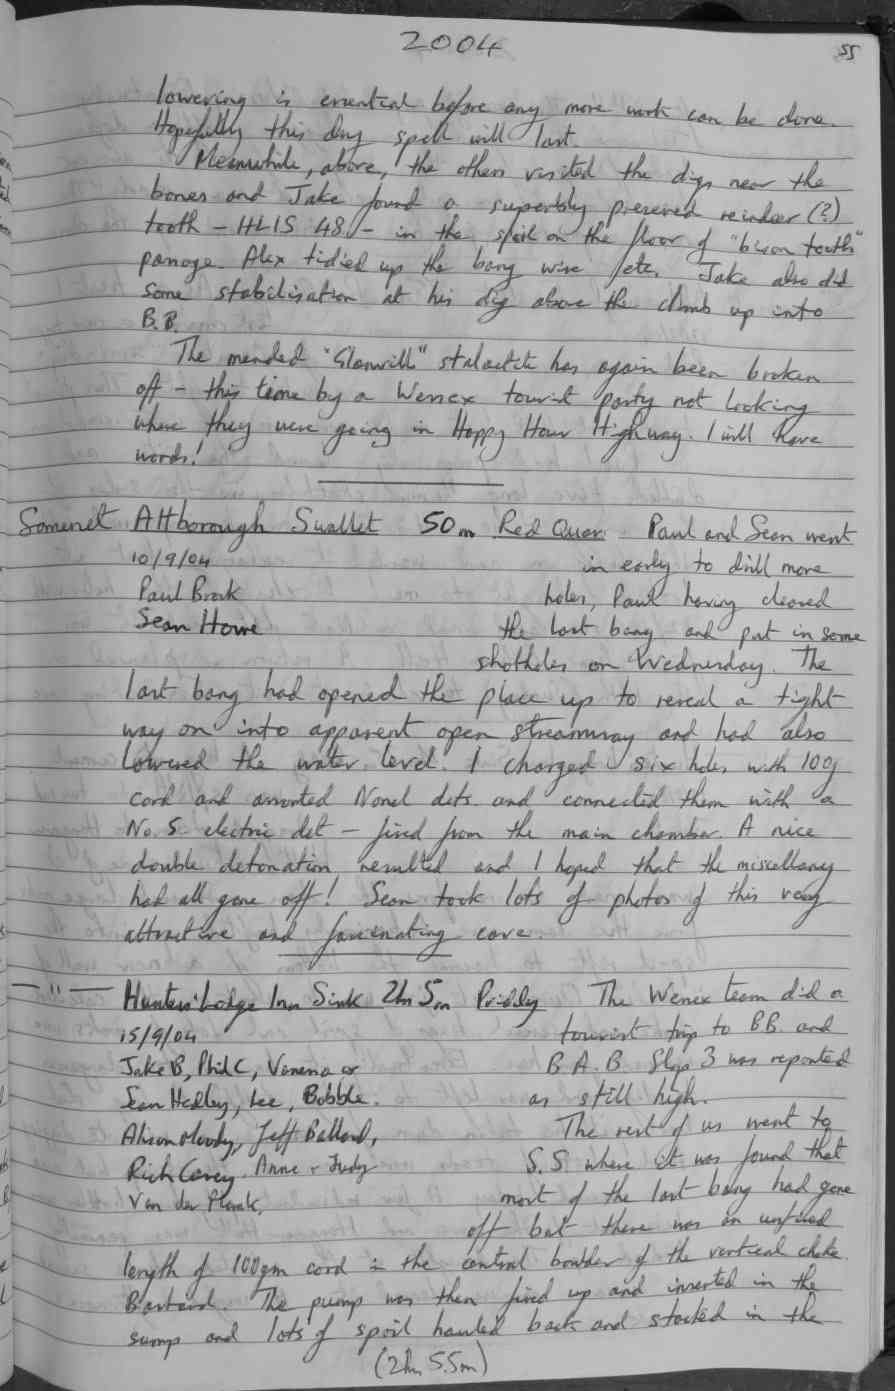 2004
55
lowering is essential before any more work can be done.
Hopefully this dry spell will last.
Meanwhile, above, the others visited the digs near the
bones and Jake found a superbly preserved reindeer (?)
tooth - HLIS 48 - in the spoil on the floor of "bison tooth"
passage. Alex tidied up the bang wire etc. Jake also did
some stabilisation at his dig above the climb up into
B.B.
The mended "Glanvill" stalactite has again been broken
off - this time by a Wessex tourist party not looking
where they were going in Happy Hour Highway. I will have
words!
Somerset Attborough Swallet 50m Red Quar. Paul and Sean went
10/9/04 in early to drill more
Paul Brock holes, Paul having cleared
Sean Howe the last bang and put in some
shotholes on Wednesday. The
last bang had opened the place up to reveal a tight
way on into apparent open streamway and had also
lowered the water level. I charged six holes with 100g
cord and assorted Nonel dets. and connected them with a
No. 5. electric det - fired from the main chamber. A nice
double detonation resulted and I hoped that the miscellany
had all gone off! Sean took lots of photos of this very
attractive and fascinating cave.
— " — Hunters' Lodge Inn Sink 2h 5m Priddy The Wessex team did a
15/9/04 tourist trip to BB and
Jake B, Phil C, Vanessa or B.A.B. Slop 3 was reported
Sean Hedley, Lee, Bobble. as still high.
Alison Moody, Jeff Ballard, The rest of us went to
Rich Carey. Anne + Judy S.S where it was found that
Van der Plank, most of the last bang had gone
off but there was an unfired
length of 100gm cord in the central boulder of the vertical choke
Bastard. The pump was then fired up and inserted in the
sump and lots of spoil hauled back and stacked in the
(2h 55m)